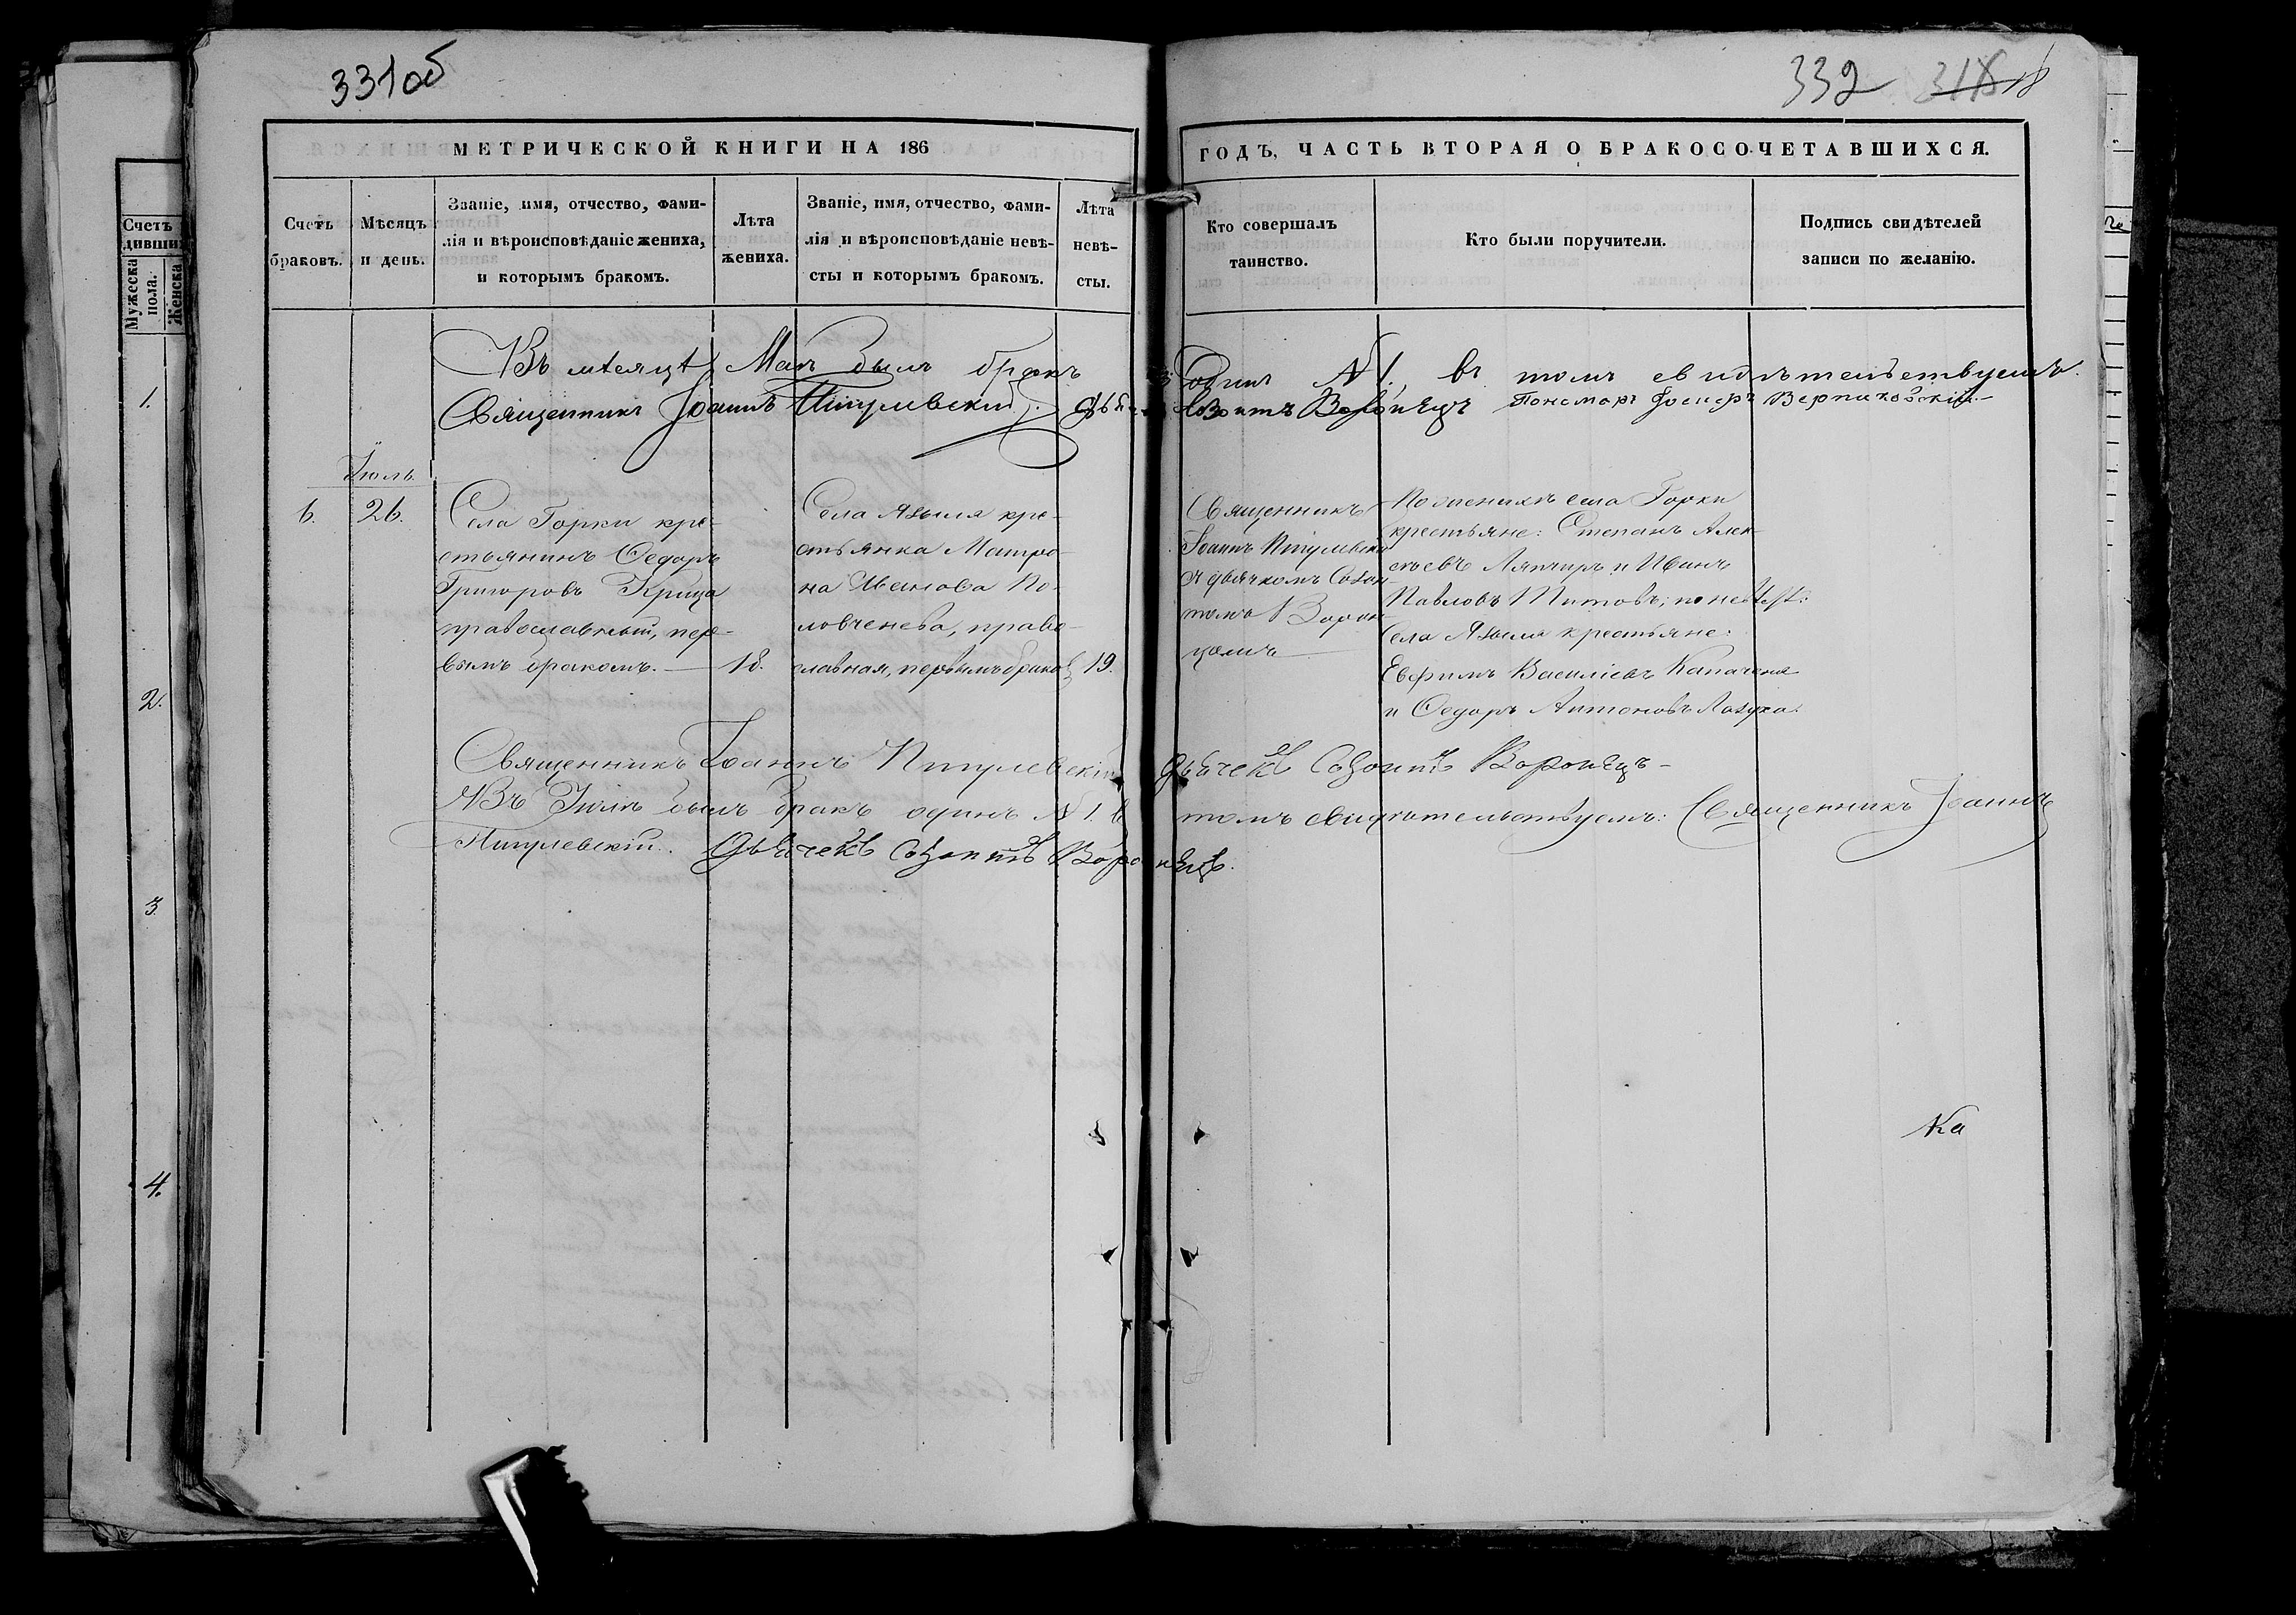 331об
332 318 18
МЕТРИЧЕСКОЙ КНИГИ НА 186
ГОДЪ, ЧАСТЬ ВТОРАЯ О БРАКОСОЧЕТАВШИХСЯ.
Счетъ
браковъ.
Мѣсяцъ
и день.
Званіе, имя, отчество, фами-
лія и вѣроисповѣданіе жениха,
и которымъ бракомъ.
Лѣта
жениха.
Званіе, имя, отчество, фами-
лія и вѣроисповѣданіе невѣ-
сты и которымъ бракомъ.
Лѣта
невѣ-
сты.
Кто совершалъ
таинство.
Кто были поручители.
Подпись свидѣтелей
записи по желанію.
Въ мѣсяцѣ Маѣ былъ бракъ одинъ № 1. въ томъ свидѣтельствуемъ.
Священникъ Іоаннъ Пигулевскій. Созонтъ Воронецъ Пономарь
Іюль.
6.
26.
Села Горки кре-
стьянинъ Ѳедоръ
Григоровъ Крица
православный, пер-
вымъ бракомъ.
18.
Села Языля кре-
стьянка Матро-
на Иванова По-
ловченева, право-
славная, первымъ браком
19.
Священникъ
Іоаннъ Пигулевскій
съ дьячкомъ Созон-
томъ Ворон-
цомъ
По женихѣ села Горки
крестьяне: Степанъ Алек-
сѣевъ Ляпчиръ и Иванъ
Павловъ Титовъ; по невѣстѣ:
Села Языля крестьяне:
Евфимъ Василіевъ Капачена
и Ѳедоръ Антоновъ Лазука.
Священникъ Іоаннъ Пигулевскій Дьячекъ Созонтъ Воронецъ
Въ Іюлѣ былъ бракъ одинъ № 1. въ томъ свидѣтельствуемъ: Священникъ Іоаннъ
Пигулевскій. Дьячекъ Созонтъ Воронецъ.
Ка
Счетъ
дивших
Мужеска
пола.
Женска
1.
2.
3.
4.